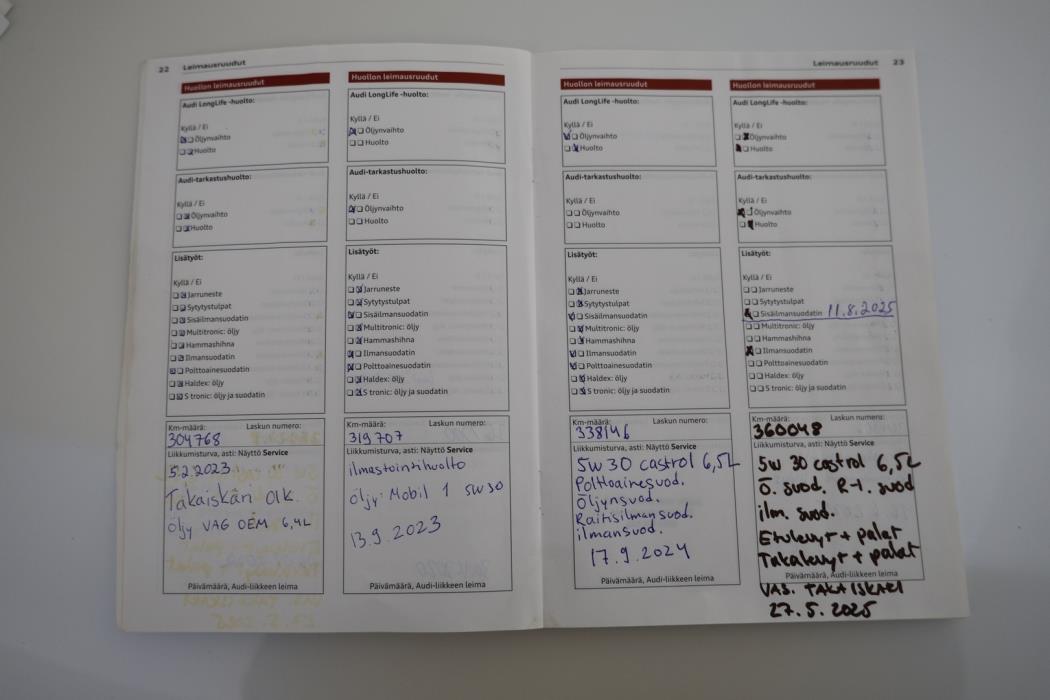 22 Leimausruudut
Huollon leimausruudut
Audi LongLife -huolto:
Kyllä / Ei
Öljynvaihto
Huolto
Audi-tarkastushuolto:
Kyllä / Ei
Öljynvaihto
Huolto
Lisätyöt:
Kyllä / Ei
Jarruneste
Sytytystulpat
Sisäilmansuodatin
Multitronic: öljy
Hammashihna
Ilmansuodatin
Polttoainesuodatin
Haldex: öljy
S tronic: öljy ja suodatin
Km-määrä: Laskun numero:
304768
Liikkumisturva, asti: Näyttö Service
5.2.2023
Takaiskari oik.
Öljy VAG OEM 6,4L
Päivämäärä, Audi-liikkeen leima
Huollon leimausruudut
Audi LongLife -huolto:
Kyllä / Ei
Öljynvaihto
Huolto
Audi-tarkastushuolto:
Kyllä / Ei
Öljynvaihto
Huolto
Lisätyöt:
Kyllä / Ei
Jarruneste
Sytytystulpat
Sisäilmansuodatin
Multitronic: öljy
Hammashihna
Ilmansuodatin
Polttoainesuodatin
Haldex: öljy
S tronic: öljy ja suodatin
Km-määrä: Laskun numero:
319707
Liikkumisturva, asti: Näyttö Service
ilmastointihuolto
Öljy: Mobil 1 5W30
13.9.2023
Päivämäärä, Audi-liikkeen leima
Leimausruudut 23
Huollon leimausruudut
Audi LongLife -huolto:
Kyllä / Ei
Öljynvaihto
Huolto
Audi-tarkastushuolto:
Kyllä / Ei
Öljynvaihto
Huolto
Lisätyöt:
Kyllä / Ei
Jarruneste
Sytytystulpat
Sisäilmansuodatin
Multitronic: öljy
Hammashihna
Ilmansuodatin
Polttoainesuodatin
Haldex: öljy
S tronic: öljy ja suodatin
Km-määrä: Laskun numero:
338146
Liikkumisturva, asti: Näyttö Service
5w30 castrol 6,5L
Polttoainesuod.
Öljynsuod.
Raitisilmansuod.
ilmansuod.
17.9.2024
Päivämäärä, Audi-liikkeen leima
Huollon leimausruudut
Audi LongLife -huolto:
Kyllä / Ei
Öljynvaihto
Huolto
Audi-tarkastushuolto:
Kyllä / Ei
Öljynvaihto
Huolto
Lisätyöt:
Kyllä / Ei
Jarruneste
Sytytystulpat
Sisäilmansuodatin 11.8.2025
Multitronic: öljy
Hammashihna
Ilmansuodatin
Polttoainesuodatin
Haldex: öljy
S tronic: öljy ja suodatin
Km-määrä: Laskun numero:
360048
Liikkumisturva, asti: Näyttö Service
5w 30 castrol 6,5L
Ö. suod. R-I. suod
ilm. suod.
Etulevyt + palat
Takalevyt + palat
Päivämäärä, Audi-liikkeen leima
VAS. TAKAISKARI
27.5.2025